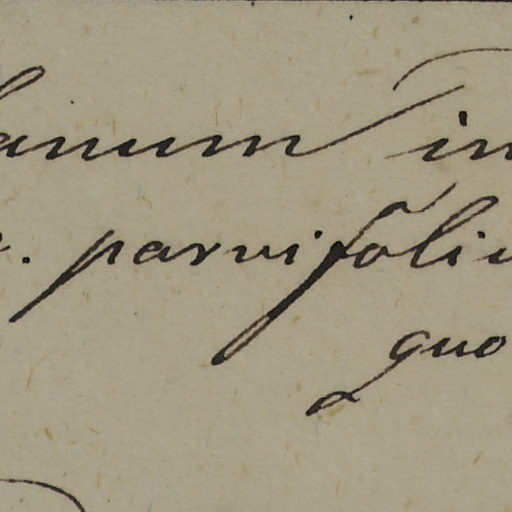 lanum in
. parvifoliu
quo